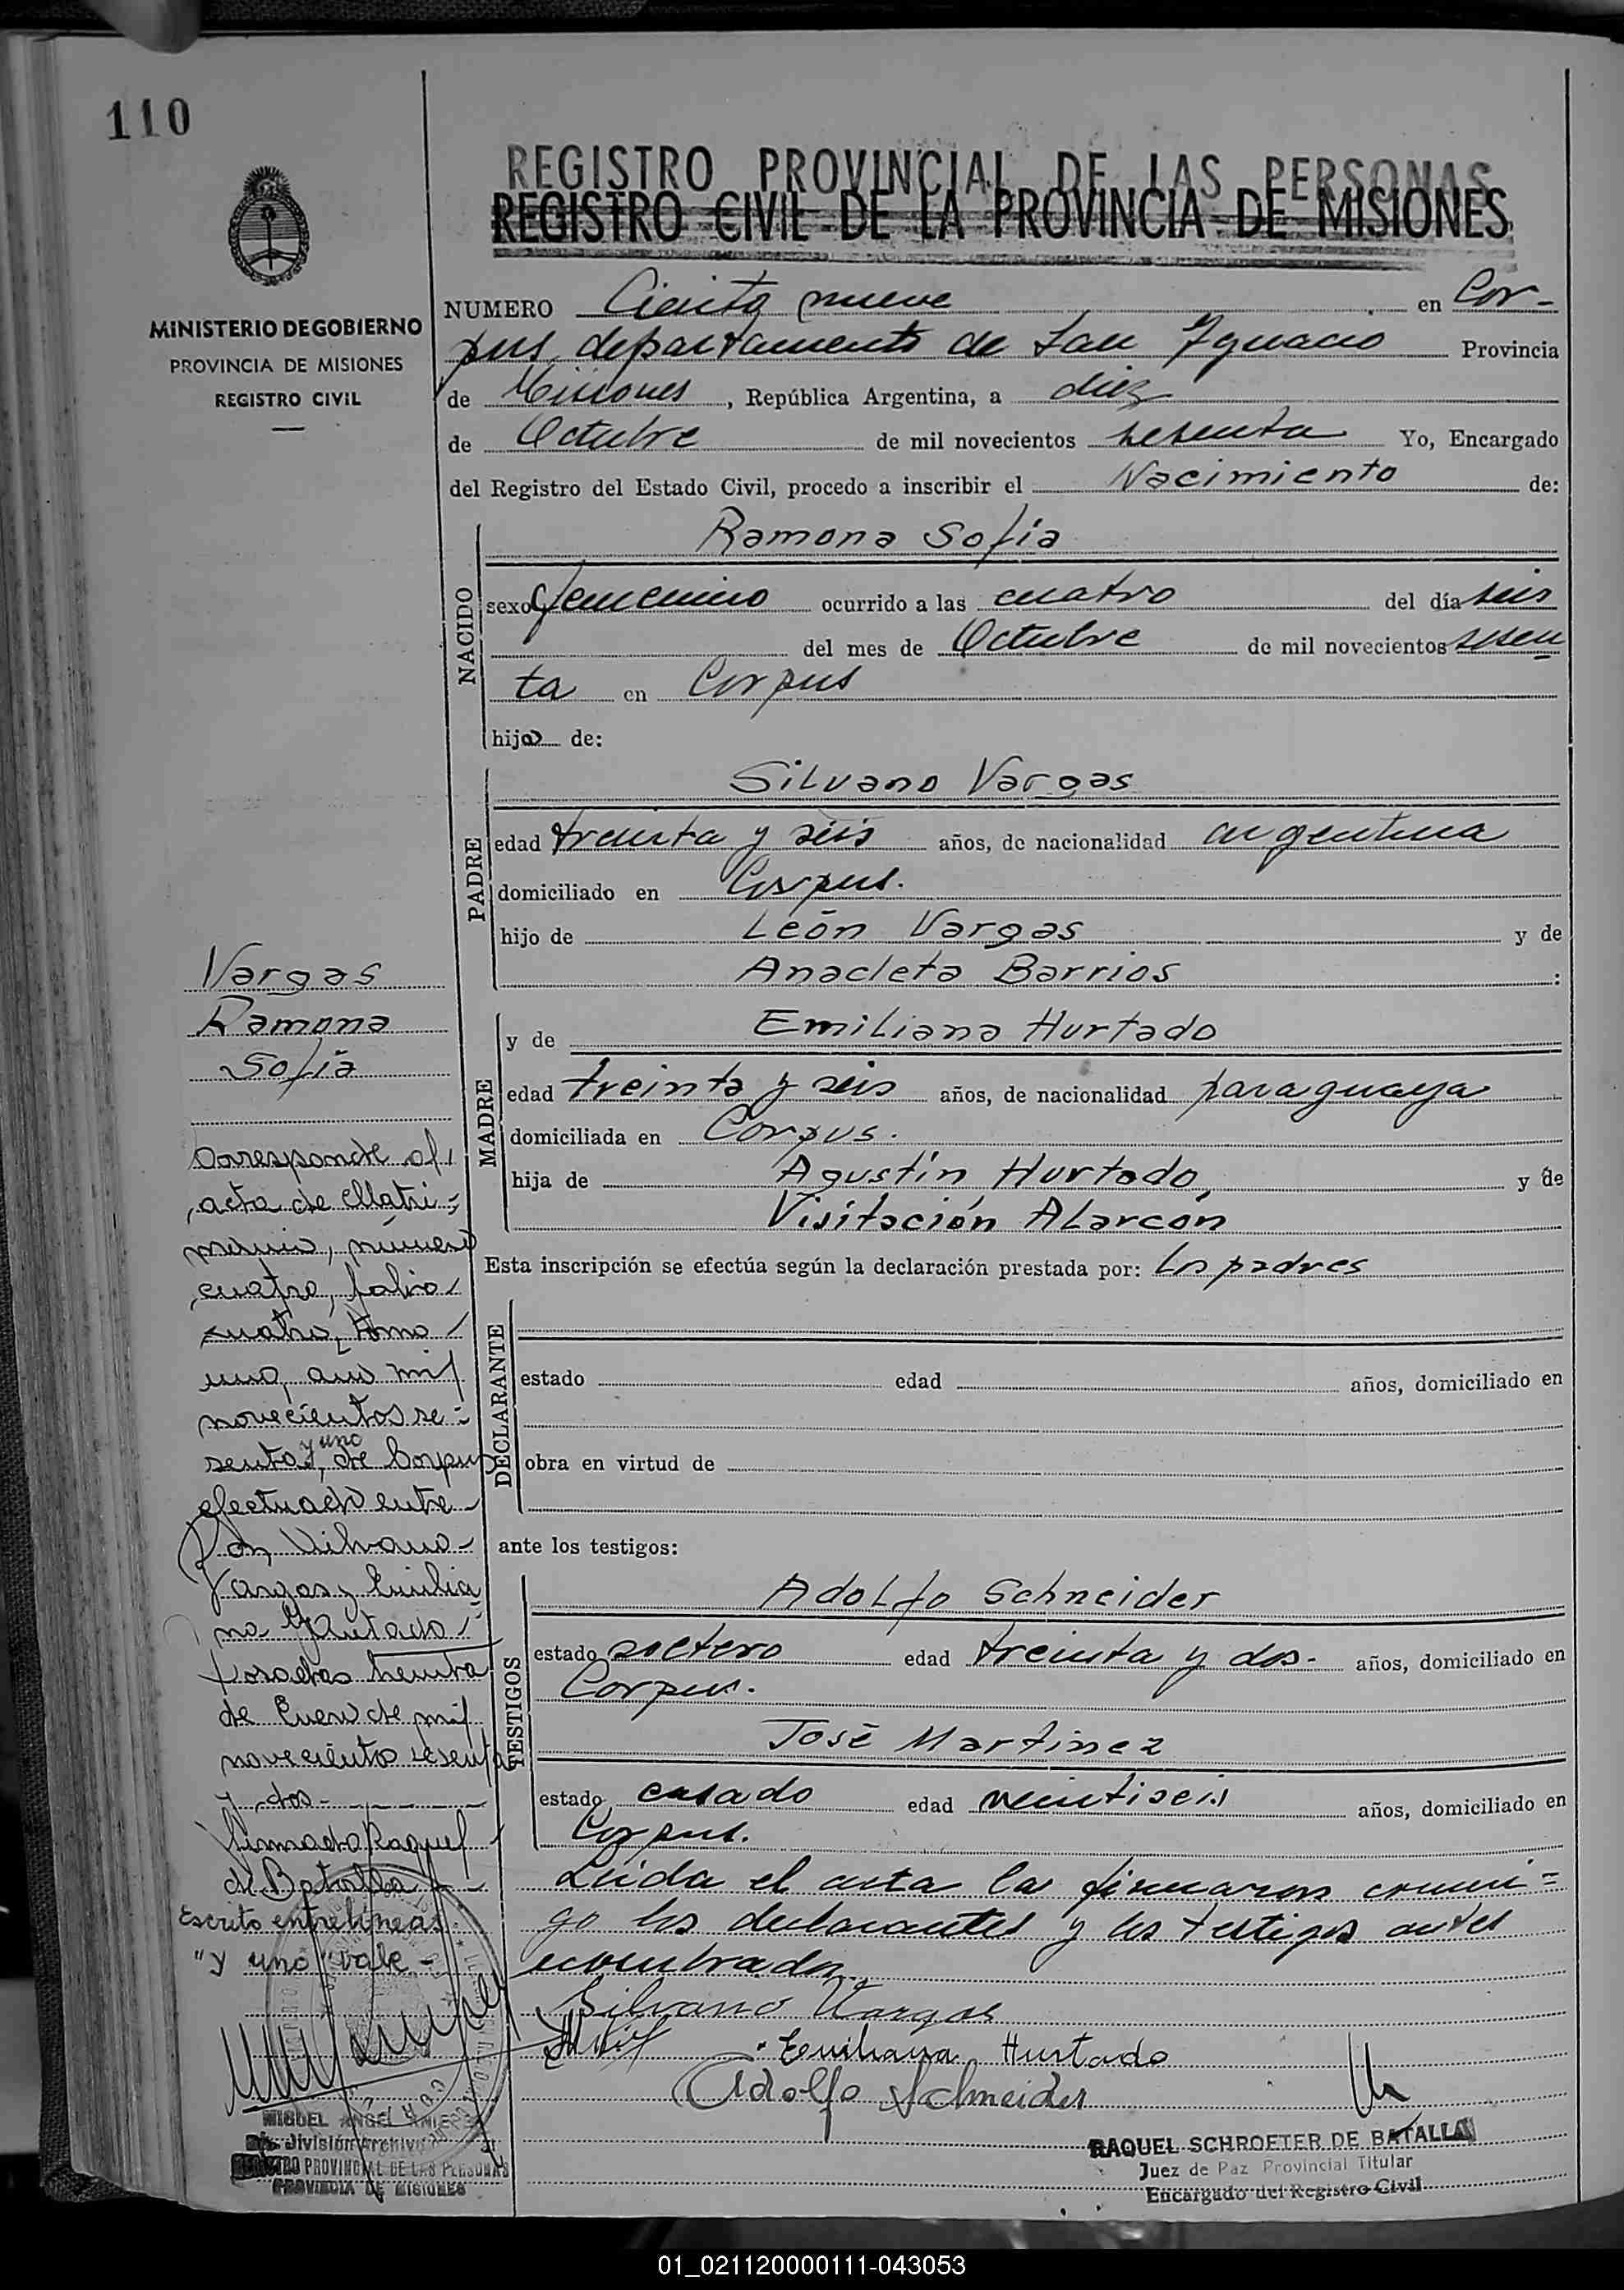 110
REGISTRO PROVINCIAL DE LAS PERSONAS
REGISTRO CIVIL DE LA PROVINCIA DE MISIONES
MINISTERIO DE GOBIERNO
PROVINCIA DE MISIONES
REGISTRO CIVIL
NUMERO Ciento nueve en Cor-
pus, departamento de San Ignacio Provincia
de Misiones, República Argentina, a diez
de Octubre de mil novecientos sesenta Yo, Encargado
del Registro del Estado Civil, procedo a inscribir el Nacimiento de:
NACIDO
Ramona Sofia
sexo femenino ocurrido a las cuatro del día seis
del mes de Octubre de mil novecientos sesen
ta en Corpus
hija de:
PADRE
Silvano Vargas
edad treinta y seis años, de nacionalidad argentina
domiciliado en Corpus.
hijo de León Vargas y de
Anacleta Barrios :
MADRE
y de Emiliana Hurtado
edad treinta y seis años, de nacionalidad paraguaya
domiciliada en Corpus.
hija de Agustín Hurtado, y de
Visitación Alarcón
Esta inscripción se efectúa según la declaración prestada por: los padres
DECLARANTE
estado edad años, domiciliado en
obra en virtud de
ante los testigos:
TESTIGOS
Adolfo Schneider
estado soltero edad treinta y dos.- años, domiciliado en
Corpus.
José Martinez
estado casado edad veintiseis años, domiciliado en
Corpus.
Leida el acta la firmaron conmi=
go los declarantes y los testigos antes
nombrados
Silvano Vargas
Emiliana Hurtado
Adolfo Schneider
RAQUEL SCHROETER DE BATALLA
Juez de Paz Provincial Titular
Encargado del Registro Civil
Vargas
Ramona
Sofia
Corresponde al
acta de Matri-
monio, numero
cuatro, folio
cuatro, tomo
uno, año mil
novecientos se-
y uno
senta, de Corpus
efectuado entre
Don Silvano
Vargas y Emilia
na Hurtado
Posadas treinta
de Enero de mil
novecientos sesenta
y dos-
firmado Raquel
de Batalla
Escrito entrelíneas
"y uno" vale-
MIGUEL ANGEL
División Archivo
REGISTRO PROVINCIAL DE LAS PERSONAS
PROVINCIA DE MISIONES
01_021120000111-043053